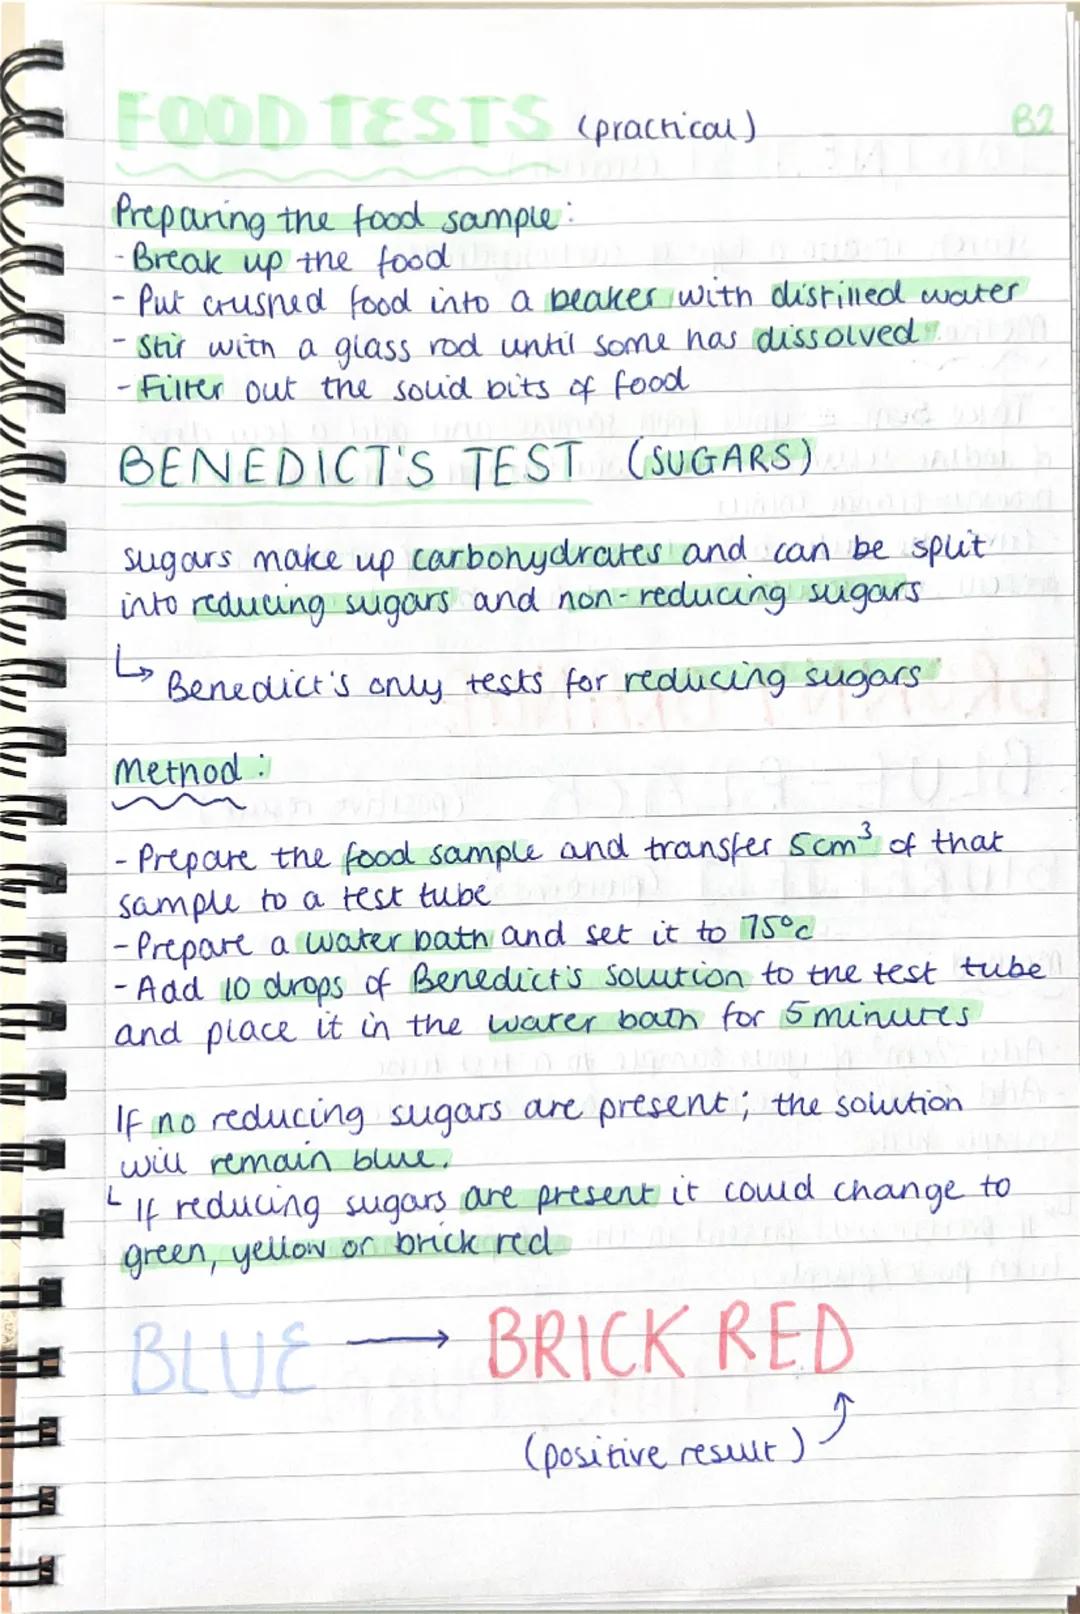 FOOD TESTS (practical) B2
Preparing the food sample:
- Break up the food
- Put crushed food into a beaker with distilled water
- Stir with a glass rod until some has dissolved
- Filter out the solid bits of food
BENEDICT'S TEST (SUGARS)
sugars make up carbohydrates and can be split
into reducing sugars and non-reducing sugars
↳ Benedict's only tests for reducing sugars
Method:
- Prepare the food sample and transfer 5cm³ of that
sample to a test tube
- Prepare a water bath and set it to 75°c
- Add 10 drops of Benedict's solution to the test tube
and place it in the water bath for 5 minutes
If no reducing sugars are present; the solution
will remain blue.
└ If reducing sugars are present it could change to
green, yellow or brick red
BLUE → BRICK RED
(positive result)